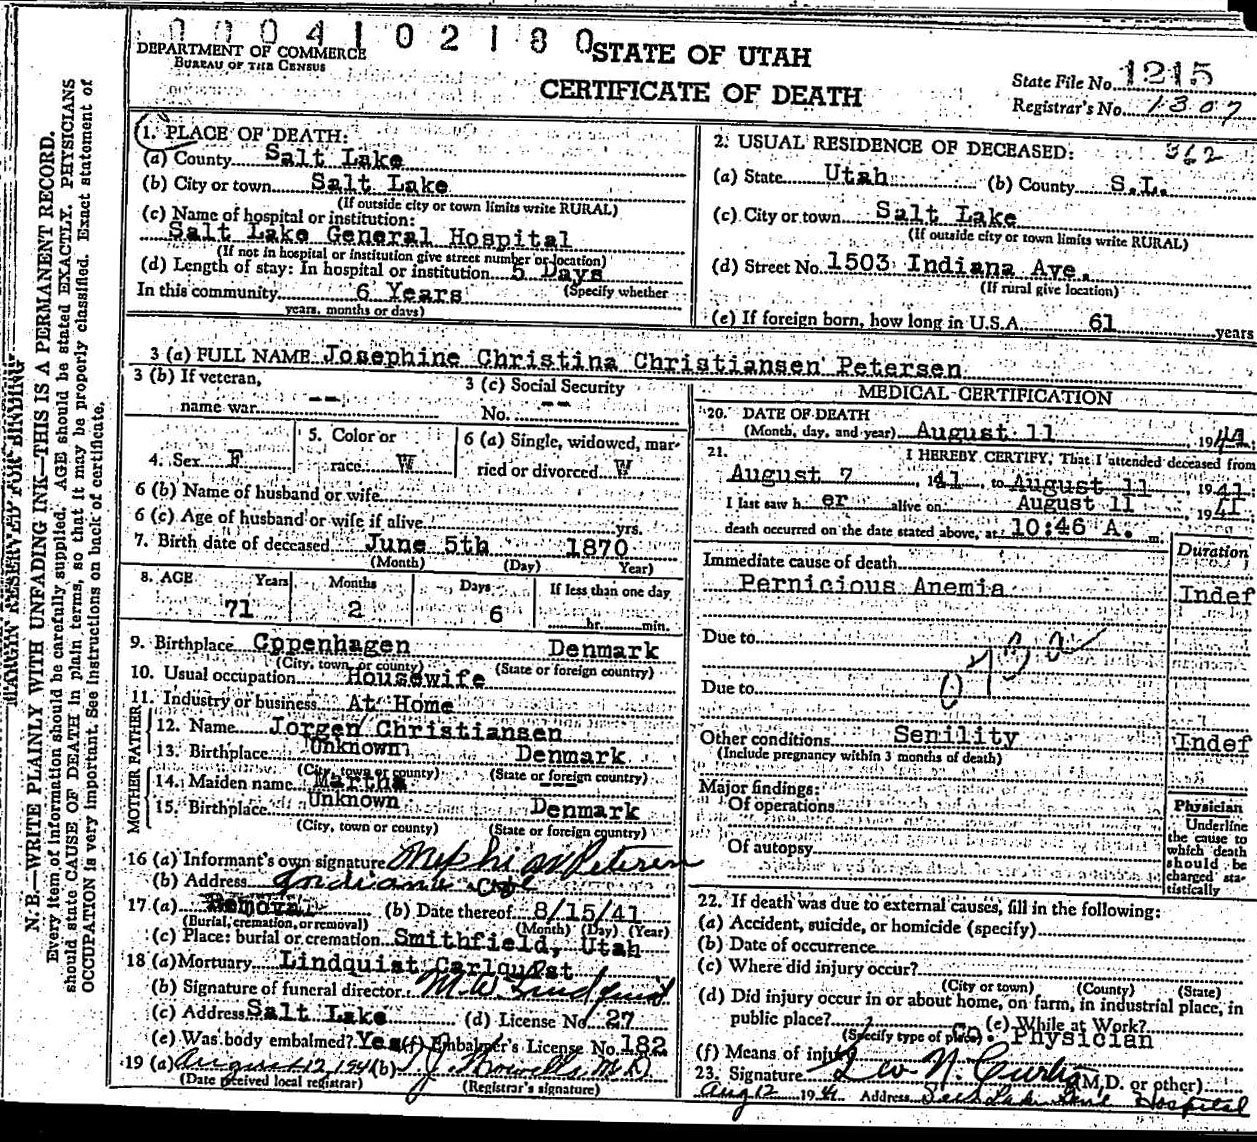 0004102180
STATE OF UTAH
DEPARTMENT OF COMMERCE
BUREAU OF THE CENSUS
CERTIFICATE OF DEATH
State File No. 1215
Registrar's No. 1307
1. PLACE OF DEATH:
(a) County Salt Lake
(b) City or town Salt Lake
(If outside city or town limits write RURAL)
(c) Name of hospital or institution:
Salt Lake General Hospital
(If not in hospital or institution give street number or location)
(d) Length of stay: In hospital or institution 5 Days
In this community 6 Years (Specify whether
years, months or days)
2. USUAL RESIDENCE OF DECEASED: 362
(a) State Utah (b) County S.L.
(c) City or town Salt Lake
(If outside city or town limits write RURAL)
(d) Street No. 1503 Indiana Ave.
(If rural give location)
(e) If foreign born, how long in U.S.A. 61 years
3 (a) FULL NAME Josephine Christina Christiansen Petersen
3 (b) If veteran,
name war --
3 (c) Social Security
No. --
4. Sex F
5. Color or
race W
6 (a) Single, widowed, mar-
ried or divorced W
6 (b) Name of husband or wife
6 (c) Age of husband or wife if alive yrs.
7. Birth date of deceased June 5th 1870
(Month) (Day) Year)
8. AGE Years Months Days If less than one day
71 2 6 hr. min.
9. Birthplace Coppenhagen Denmark
(City, town, or county) (State or foreign country)
10. Usual occupation Housewife
11. Industry or business At Home
FATHER
12. Name Jorgen Christiansen
13. Birthplace Unknown Denmark
(City, town or county) (State or foreign country)
MOTHER
14. Maiden name Martha ---
15. Birthplace Unknown Denmark
(City, town or county) (State or foreign country)
16 (a) Informant's own signature Nephi W Petersen
(b) Address Indiana Ave
17 (a) Removal (b) Date thereof 8/15/41
(Burial, cremation, or removal) (Month) (Day) (Year)
(c) Place: burial or cremation Smithfield, Utah
18 (a) Mortuary Lindquist Carlquist
(b) Signature of funeral director M.W. Lindquist
(c) Address Salt Lake (d) License No. 27
(e) Was body embalmed? Yes (f) Embalmer's License No. 182
19 (a) August 12, 1941 (b) T.J. Howells M.D
(Date received local registrar) (Registrar's signature)
MEDICAL CERTIFICATION
20. DATE OF DEATH
(Month, day, and year) August 11 1941
21. I HEREBY CERTIFY, That I attended deceased from
August 7, 1941, to August 11, 1941.
I last saw her alive on August 11, 1941,
death occurred on the date stated above, at 10:46 A. m.
Duration
Immediate cause of death
Pernicious Anemia Indef
Due to
Due to
Other conditions Senility Indef
(Include pregnancy within 3 months of death)
Major findings:
Of operations
Of autopsy
Physician
Underline
the cause to
which death
should be
charged sta-
tistically
22. If death was due to external causes, fill in the following:
(a) Accident, suicide, or homicide (specify)
(b) Date of occurrence
(c) Where did injury occur?
(City or town) (County) (State)
(d) Did injury occur in or about home, on farm, in industrial place, in
public place? (e) While at Work?
(Specify type of place) Co. Physician
(f) Means of injury
23. Signature Leo N. Curtis (M.D. or other)
Aug 12 1941 Address Salt Lake Gene Hospital
MARGIN RESERVED FOR BINDING
N. B.—WRITE PLAINLY WITH UNFADING INK—THIS IS A PERMANENT RECORD.
Every item of information should be carefully supplied. AGE should be stated EXACTLY. PHYSICIANS
should state CAUSE OF DEATH in plain terms, so that it may be properly classified. Exact statement of
OCCUPATION is very important. See instructions on back of certificate.